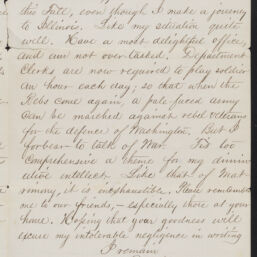 this Fall, even though I make a journey
to Illinois. Like my situation quite
well. Have a most delightful office,
and am not over-tasked. Department
Clerks are now required to play soldier
an hour each day; so that when the
Rebs come again, a pale faced army
can be marched against rebel veterans
for the defence of Washington. But I
forbear to talk of War. Tis too
Comprehensive a theme for my dimin-
utive intellect. Like that of Mat-
rimony, it is inexhaustible. Please remember
me to our friends,—especially those at your
house. Hoping that your goodness will
excuse my intolerable negligence in writing
I remain